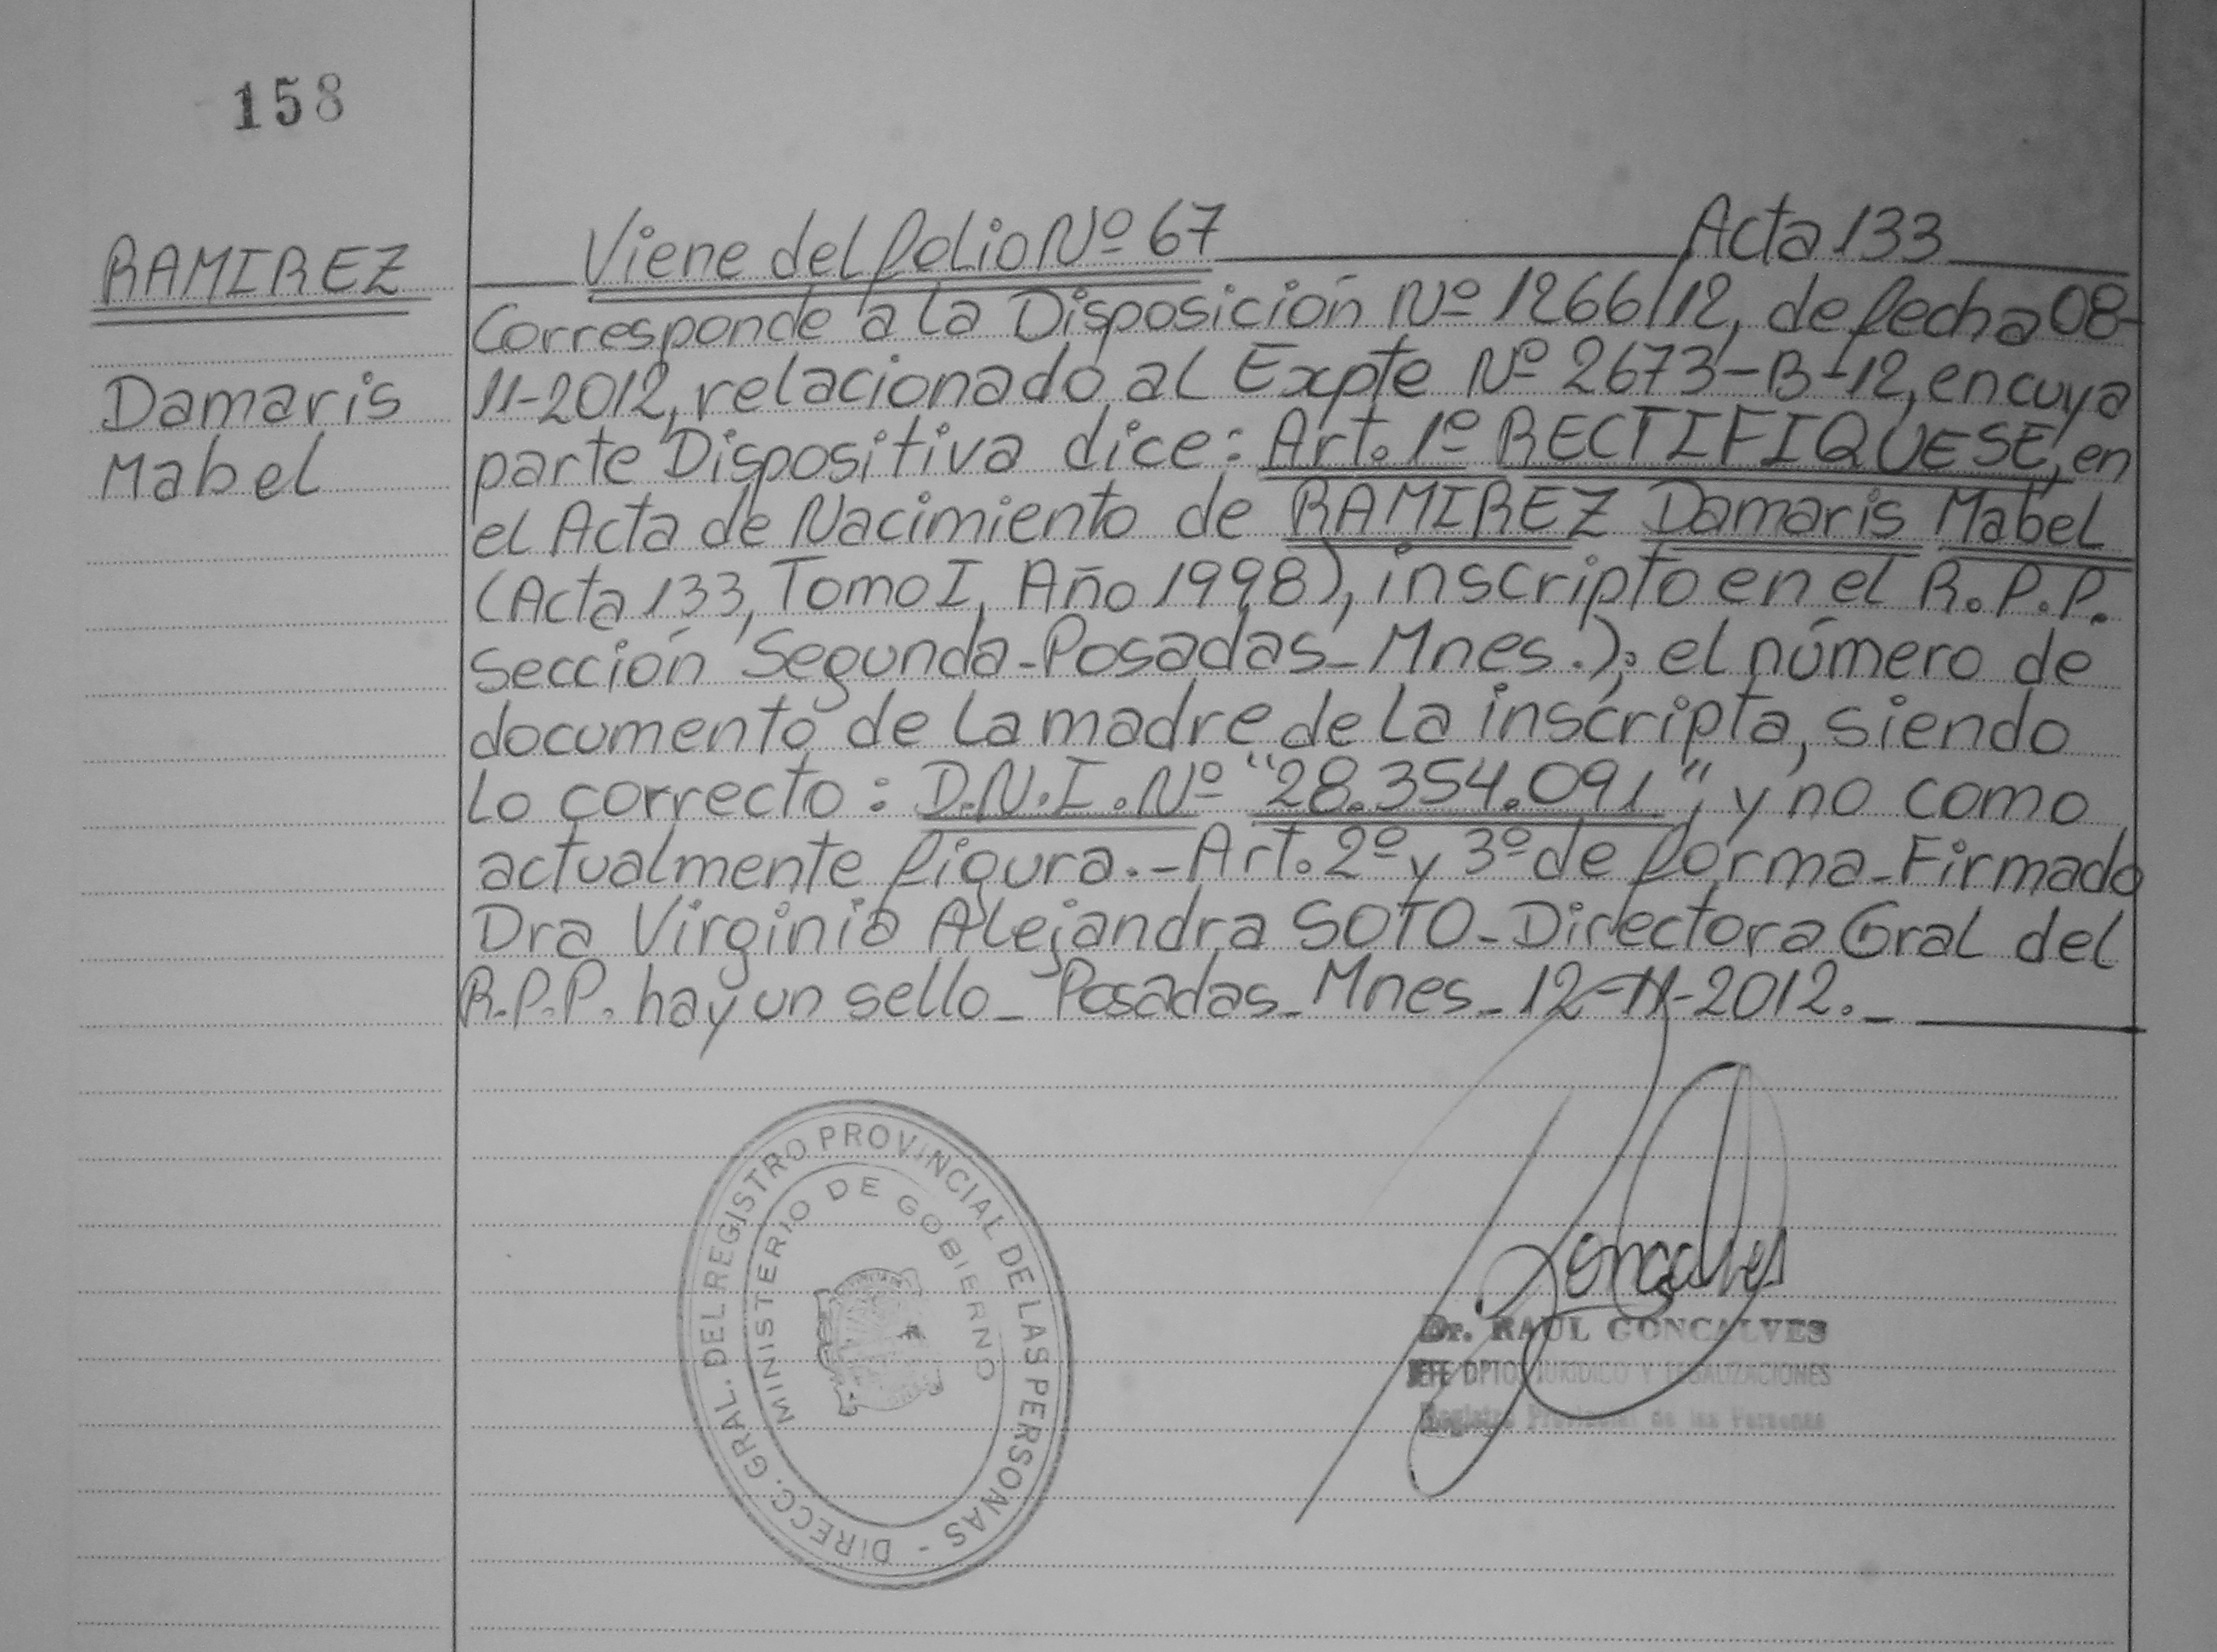 158
Viene del folio Nº 67 Acta 133
RAMIREZ
Damaris
Mabel
Corresponde a la Disposición Nº 1266/12, de fecha 08-
11-2012, relacionado al Expte Nº 2673-B-12, en cuya
parte Dispositiva dice: Art. 1º RECTIFIQUESE, en
el Acta de Nacimiento de RAMIREZ Damaris Mabel
(Acta 133, Tomo I, Año 1998), inscripto en el R.P.P.
Sección Segunda-Posadas-Mnes.); el número de
documento de la madre de la inscripta, siendo
lo correcto: D.N.I. Nº "28.354.091", y no como
actualmente figura.-Art. 2º y 3º de forma-Firmado
Dra Virginia Alejandra SOTO-Directora Gral del
R.P.P. hay un sello- Posadas-Mnes-12-11-2012.-
DIRECC. GRAL. DEL REGISTRO PROVINCIAL DE LAS PERSONAS -
MINISTERIO DE GOBIERNO
Goncalves
Dr. RAUL GONCALVES
JEFE DPTO. JURIDICO Y LEGALIZACIONES
Registro Provincial de las Personas